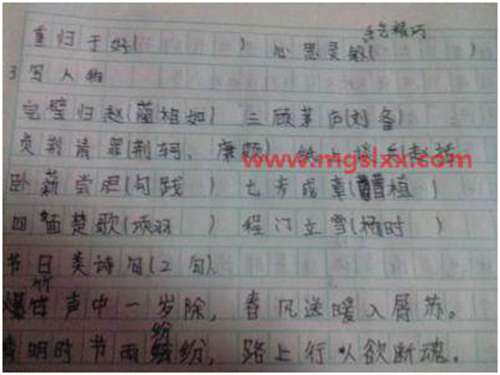 手艺精巧
重归于好( ) 心思灵敏(
3写人物
完璧归赵(蔺相如) 三顾茅庐(刘备)
负荆请罪(荆轲、廉颇) 纸上谈兵(赵括
www.mgslxx.com
卧薪尝胆(句践) 七步成章(曹植)
四面楚歌(项羽 ) 程门立雪(杨时)
节日类诗句(2句)
爆竹声中一岁除，春风送暖入屠苏。
清明时节雨纷纷，路上行人欲断魂。